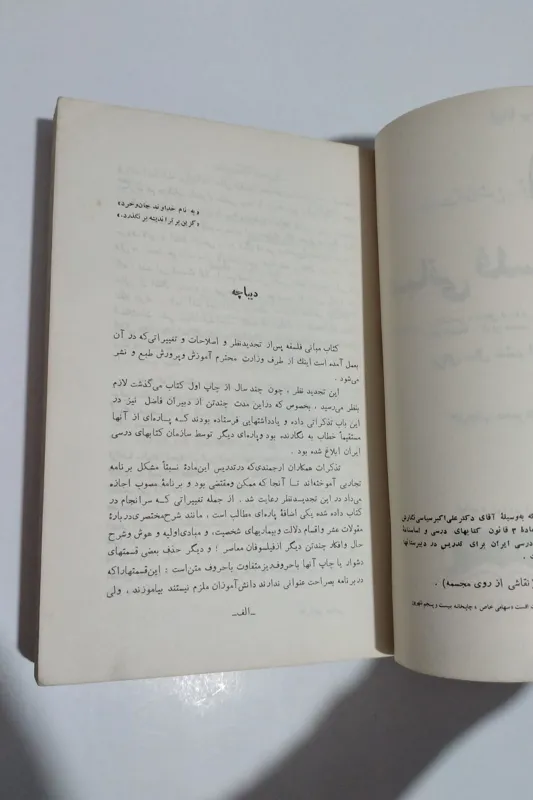 «به نام خداوند جان و خرد
کزین برتر اندیشه بر نگذرد.»
دیباچه
کتاب مبانی فلسفه پس‌از تجدیدنظر و اصلاحات و تغییراتی‌که در آن
بعمل آمده است اینك از طرف وزارت محترم آموزش وپرورش طبع و نشر
می‌شود .
این تجدید نظر ، چون چند سال از چاپ اول کتاب می‌گذشت لازم
بنظر می‌رسید ، بخصوص که‌دراین مدت چندتن از دبیران فاضل نیز در
این باب تذکراتی داده و یادداشتهایی فرستاده بودند کـه پـاره‌ای از آنها
مستقیماً خطاب به نگارنده بود وپاره‌ای دیگر توسط سازمان کتابهای درسی
ایران ابلاغ شده بود .
تذکرات همکاران ارجمندی‌که درتدریس این‌مادهٔ نسبتاً مشکل برنامه
تجاربی آموخته‌اند تـا آنجا که‌ممکن ومقتضی بود و برنامهٔ مصوب اجازه
می‌داد در این تجدیـدنظر رعایت شد . از جمله تغییراتی کـه سرانجام در
کتاب داده شده یکی اضافهٔ پاره‌ای مطالب است ، مانند شرح‌مختصری‌دربارهٔ
مقولات عشر واقسام دلالت وبیماریهای شخصیت ، و مبادی‌اولیه و هوش وشرح
حال وافکار چندتن دیگر ازفیلسوفان معاصر ؛ و دیگر حذف بعضی قسمتهای
دشوار یا چاپ آنها باحروف‌ریزمتفاوت باحروف متن‌است : این‌قسمتهاراکه
دربرنامه بصراحت عنوانی ندارند دانش‌آموزان ملزم نیستند بیاموزند ، ولی
ـ الف ـ
که به‌وسیلهٔ آقای دکتر علی‌اکبرسیاسی نگارش
مادهٔ ۳ قانون کتابهای درسی و اساسنامهٔ
درسی ایران برای تدریس در دبیرستانها
(نقاشی از روی مجسمه) .
افست (سهامی خاص) چاپخانه بیست وپنجم شهریور